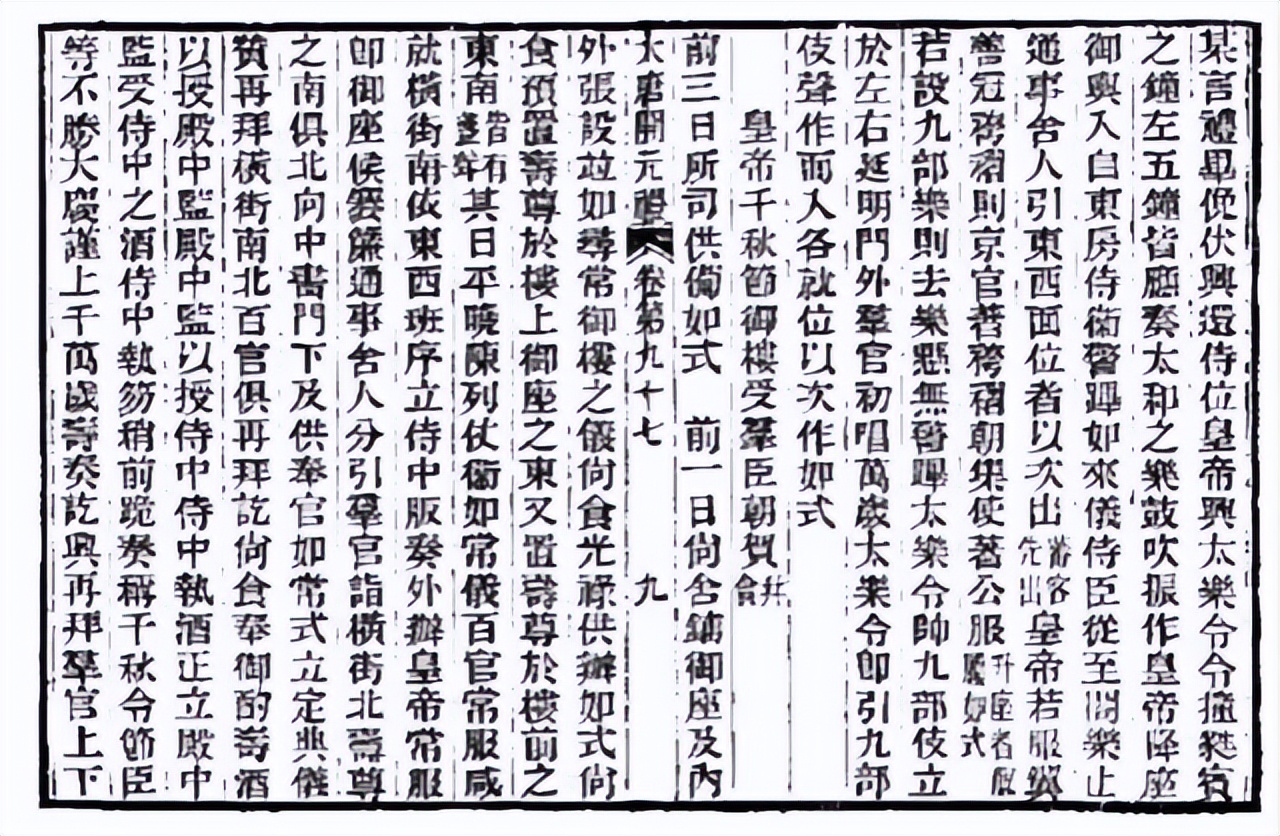 某言禮畢俛伏興還侍位皇帝興太樂令令撞蕤賓
之鐘左五鐘皆應奏太和之樂鼓吹振作皇帝降座
御輿入自東房侍衛警蹕如來儀侍臣從至閤樂止
通事舍人引東西面位者以次出蕃客先出皇帝若服翼
善冠袴褶則京官著袴褶朝集使著公服升座者服履如式
若設九部樂則去樂懸無警蹕太樂令帥九部伎立
於左右延明門外羣官初唱萬歲太樂令即引九部
伎聲作而入各就位以次作如式
皇帝千秋節御樓受羣臣朝賀并會
前三日所司供備如式 前一日尚舍鋪御座及內
大唐開元禮 卷第九十七 九
外張設竝如尋常御樓之儀尚食光祿供辦如式尚
食預置壽尊於樓上御座之東又置壽尊於樓前之
東南皆有其日平曉陳列仗衛如常儀百官常服咸
就橫街南依東西班序立侍中版奏外辦皇帝常服
卽御座侯褰簾通事舍人分引羣官詣橫街北壽尊
之南俱北向中書門下及供奉官如常式立定典儀
贊再拜橫街南北百官俱再拜訖尚食奉御酌壽酒
以授殿中監殿中監以授侍中侍中執酒正立殿中
監受侍中之酒侍中執笏稍前跪奏稱千秋令節臣
等不勝大慶謹上千萬歲壽奏訖興再拜羣官上下